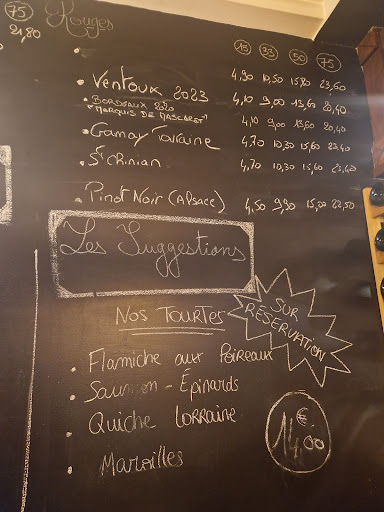 75 Rouges
21,80
15 33 50 75
Ventoux 2023 4,90 10,50 15,80 23,60
Bordeaux 2020 4,10 9,00 13,60 20,40
"Marquis de Mascaret" 4,10 9,00 13,60 20,40
Gamay Touraine 4,70 10,30 15,60 23,40
St Chinian 4,70 10,30 15,60 23,40
Pinot Noir (Alsace) 4,50 9,90 15,00 22,50
Les Suggestions
Nos Tourtes
SUR
RÉSERVATION
Flamiche aux Poireaux
Saumon - Épinards
Quiche Lorraine
Maroilles
14€00